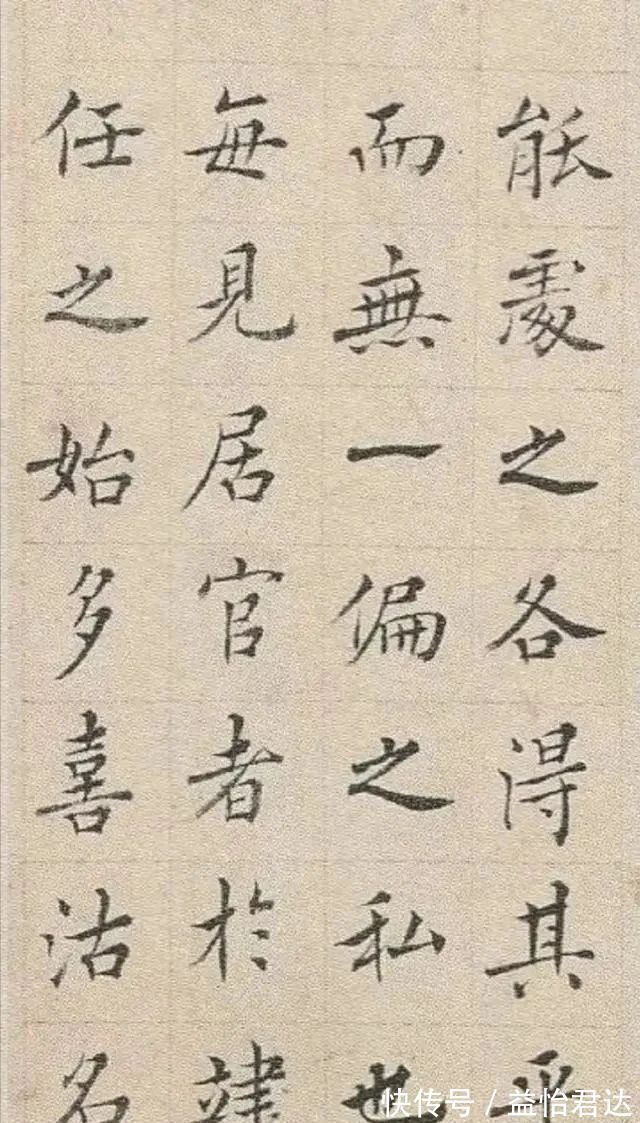 能處之各得其平
而無一偏之私也
每見居官者於
任之始多喜沽名
快传号 / 益怡君达